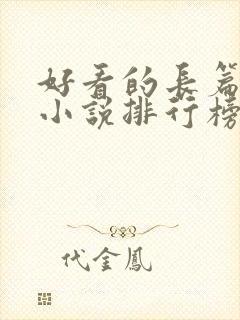 好看的長篇
小說排行榜
代金鳳